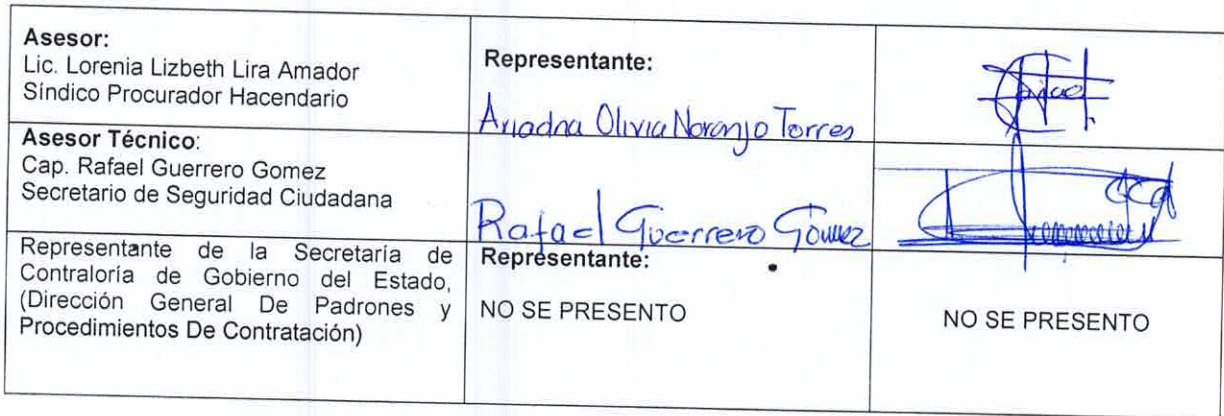 Asesor:
Lic. Lorenia Lizbeth Lira Amador
Síndico Procurador Hacendario
Representante:
Ariadna Olivia Naranjo Torres
Asesor Técnico:
Cap. Rafael Guerrero Gomez
Secretario de Seguridad Ciudadana
Rafael Guerrero Gómez
Representante de la Secretaría de
Contraloría de Gobierno del Estado,
(Dirección General De Padrones y
Procedimientos De Contratación)
Representante:
NO SE PRESENTO
NO SE PRESENTO